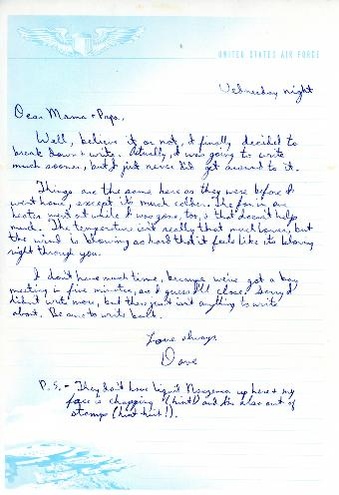 UNITED STATES AIR FORCE
Wednesday night
Dear Mama & Papa,
Well, believe it or not, I finally decided to
break down & write. Actually, I was going to write
much sooner, but I just never did get around to it.
Things are the same here as they were before I
went home, except it's much colder. The fan in our
heater went out while I was gone, too, & that doesn't help
much. The temperature isn't really that much lower, but
the wind is blowing so hard that it feels like it's blowing
right through you.
I don't have much time, because we've got a bay
meeting in five minutes, so I guess I'll close. Sorry I
didn't write more, but there just isn't anything to write
about. Be sure to write back.
Love always
Dave
P.S. - They don't have liquid Noxzema up here & my
face is chapping (hint!) and I'm also out of
stamps (hint hint!).